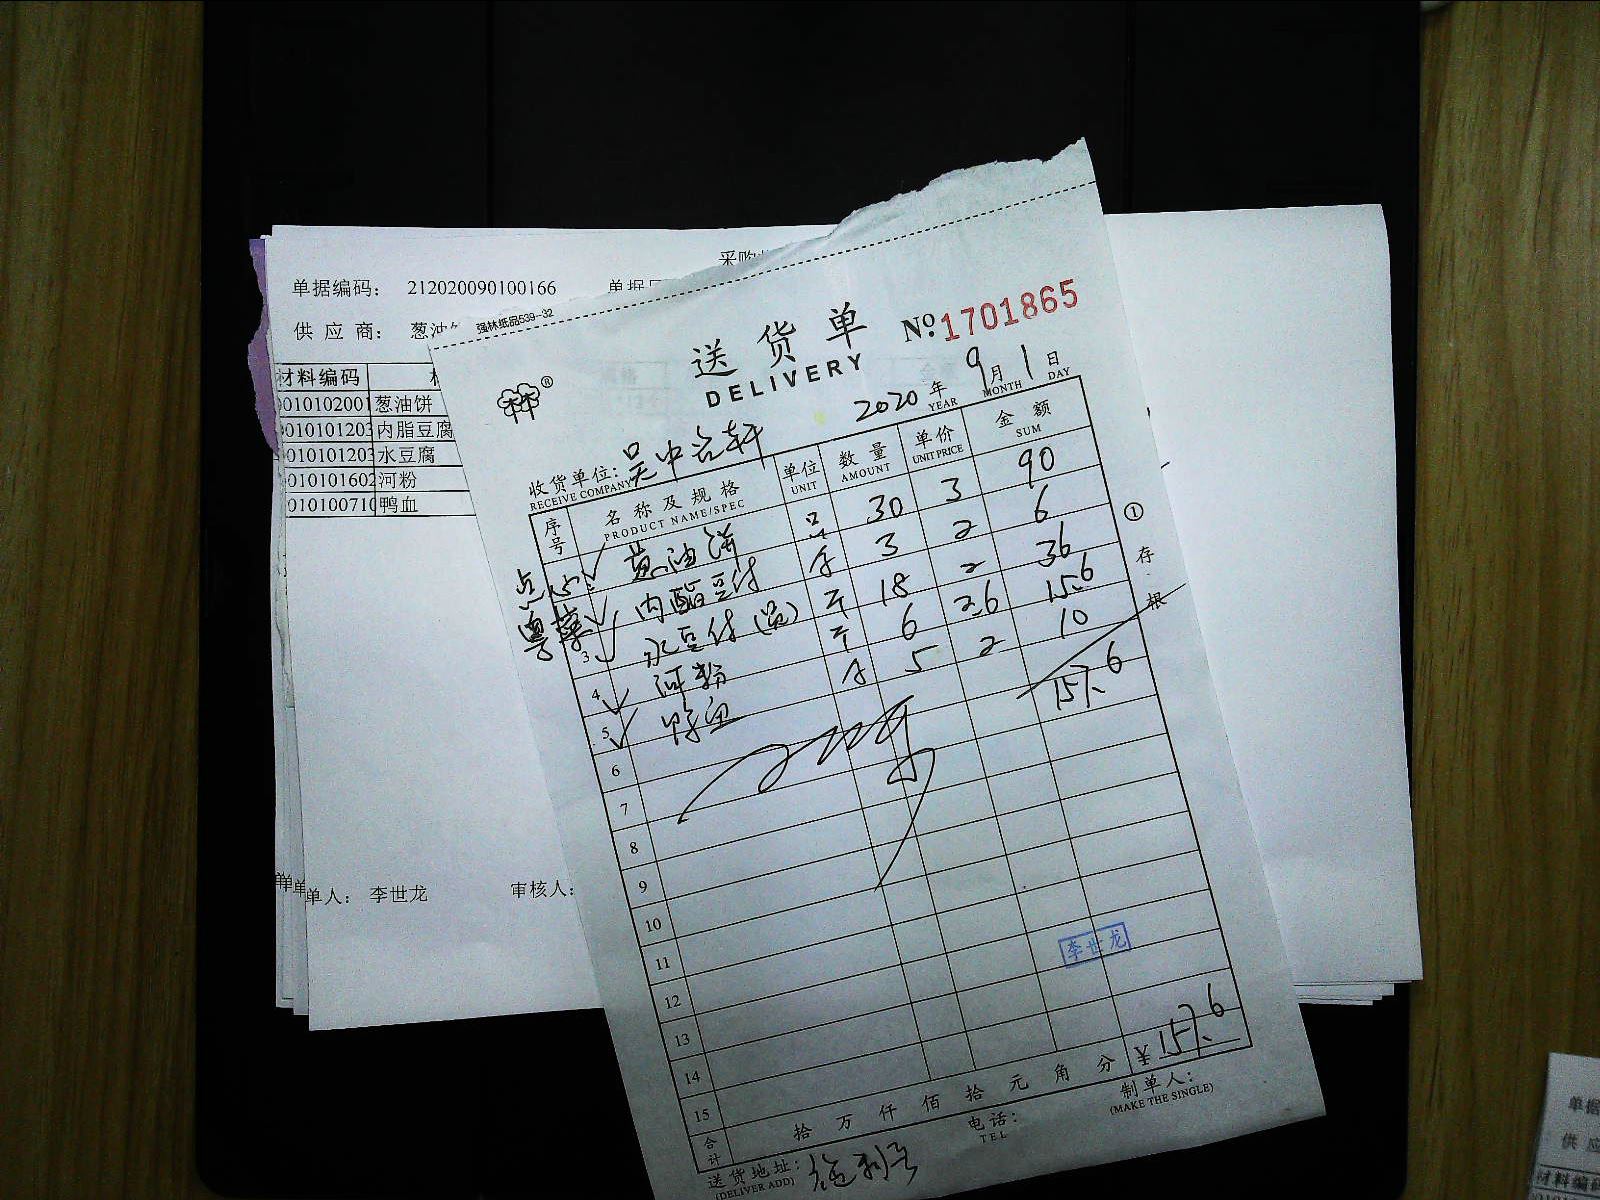 采购
单据编码: 212020090100166 单据日
供 应 商: 葱油
材料编码
0010102001 葱油饼
0010101203 内脂豆腐
0010101203 水豆腐
0010101602 河粉
0010100710 鸭血
单人: 李世龙 审核人:
强林纸品539-32
林林®
送货单 №1701865
DELIVERY
2020 年 9 月 1 日
YEAR MONTH DAY
收货单位: 吴中
RECEIVE COMPANY
序号 名称及规格 单位 数量 单价 金额
PRODUCT NAME/SPEC UNIT AMOUNT UNIT PRICE SUM
点心 葱油饼 只 30 3 90
粤菜 内酯豆付 3 2 6
3 水豆付 斤 18 2 36
4 河粉 斤 6 2.6 15.6
5 鸭血 5 2 10
157.6
6
7
8
9
10
11
12
13
14
15
李世龙
合计 拾 万 仟 佰 拾 元 角 分 ¥157.6
送货地址: 电话: 制单人:
(DELIVER ADD) TEL (MAKE THE SINGLE)
① 存根
单据
供 应
材料编码